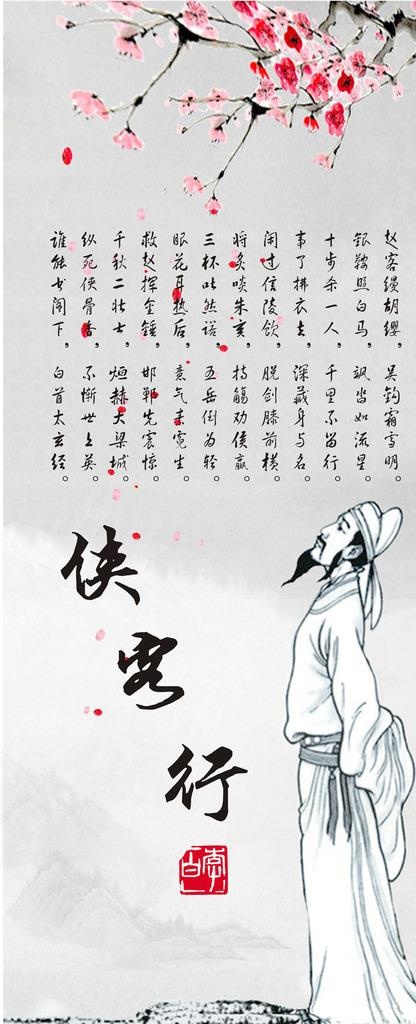 赵客缦胡缨，吴钩霜雪明。
银鞍照白马，飒沓如流星。
十步杀一人，千里不留行。
事了拂衣去，深藏身与名。
闲过信陵饮，脱剑膝前横。
将炙啖朱亥，持觞劝侯嬴。
三杯吐然诺，五岳倒为轻。
眼花耳热后，意气素霓生。
救赵挥金锤，邯郸先震惊。
千秋二壮士，烜赫大梁城。
纵死侠骨香，不惭世上英。
谁能书阁下，白首太玄经。
侠客行
李白